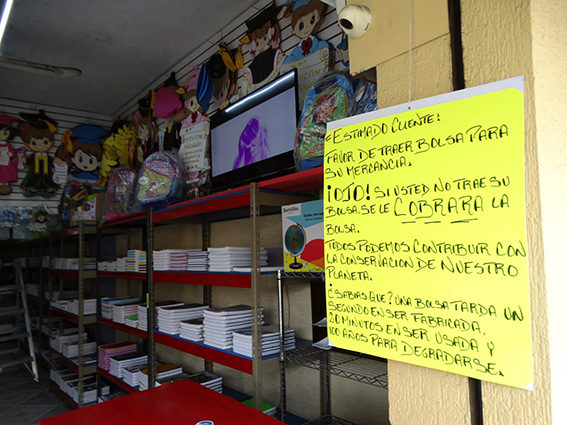 =ESTIMADO CLIENTE:
FAVOR DE TRAER BOLSA PARA
SU MERCANCIA.
¡OJO! SI USTED NO TRAE SU
BOLSA, SE LE COBRARA LA
BOLSA.
TODOS PODEMOS CONTRIBUIR CON
LA CONSERVACION DE NUESTRO
PLANETA.
¿SABIAS QUE? UNA BOLSA TARDA UN
SEGUNDO EN SER FABRICADA,
20 MINUTOS EN SER USADA Y
100 AÑOS PARA DEGRADARSE.